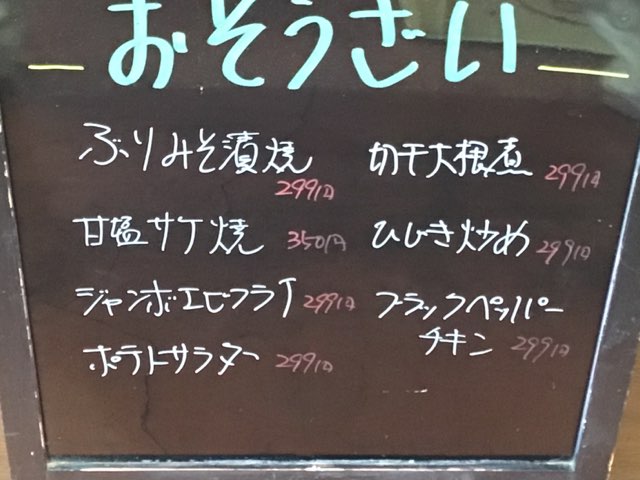 おそうざい
ぶりみそ漬焼
299円
甘塩サケ焼 350円
ジャンボエビフライ 299円
ポテトサラダー 299円
切干大根煮 299円
ひじき炒め 299円
ブラックペッパー
チキン 299円